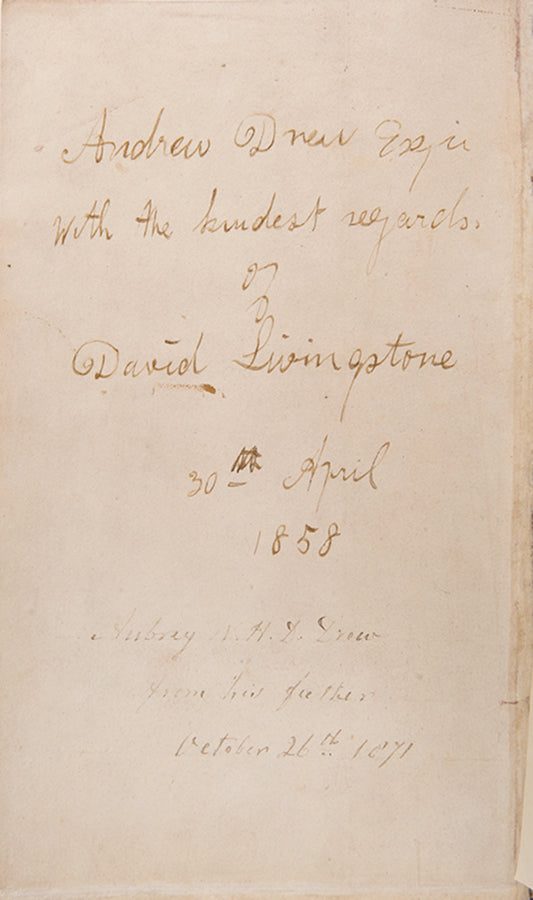 Andrew Drew Esqre
With the kindest regards.
of
David Livingstone
30th April
1858
Aubrey H. D. Drew
from his father
October 26th 1871